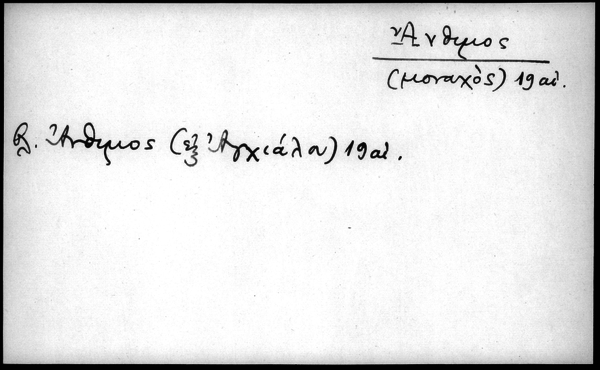 Ἄνθιμος
(μοναχὸς) 19 αἰ.
βλ. Ἄνθιμος (ἐξ Ἀγχιάλου) 19 αἰ.